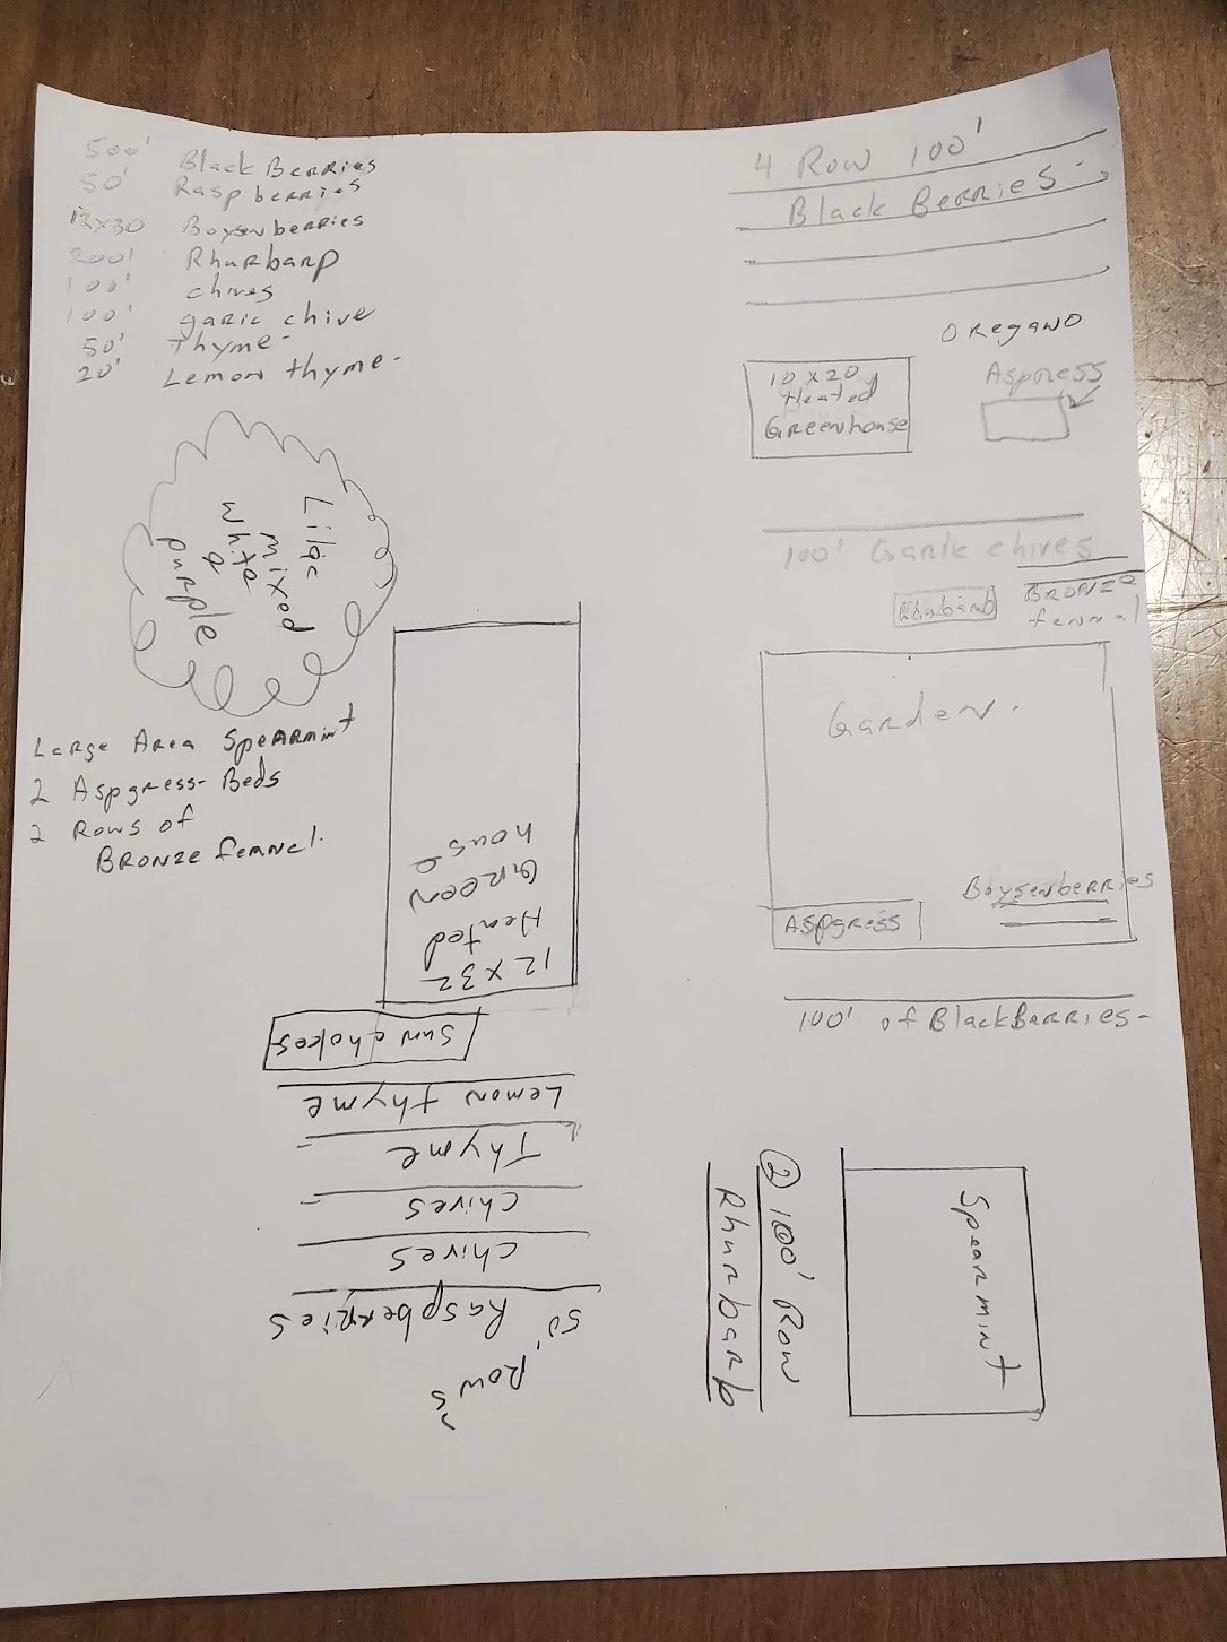 500' Black Berries
50' Raspberries
12x30 Boysenberries
200' Rhurbarp
100' chives
100' garic chive
50' Thyme-
20' Lemon thyme-
Lilac
mixed
white
&
purple
Large Area Spearmint
2 Aspgress-Beds
2 Rows of
Bronze fennel.
12 x 32
Heated
Green
house
Sun chokes
Lemon thyme
Thyme
chives
chives
50' Raspberries
Row's
4 Row 100'
Black Berries-
Oregano
10 x 20
Heated
Greenhouse
Aspress
100' Garlic chives
Bronze
fennel
Garden.
Boysenberries
Aspgress
100' of BlackBerries-
2 100' Row
Rhurbarb
Spearmint